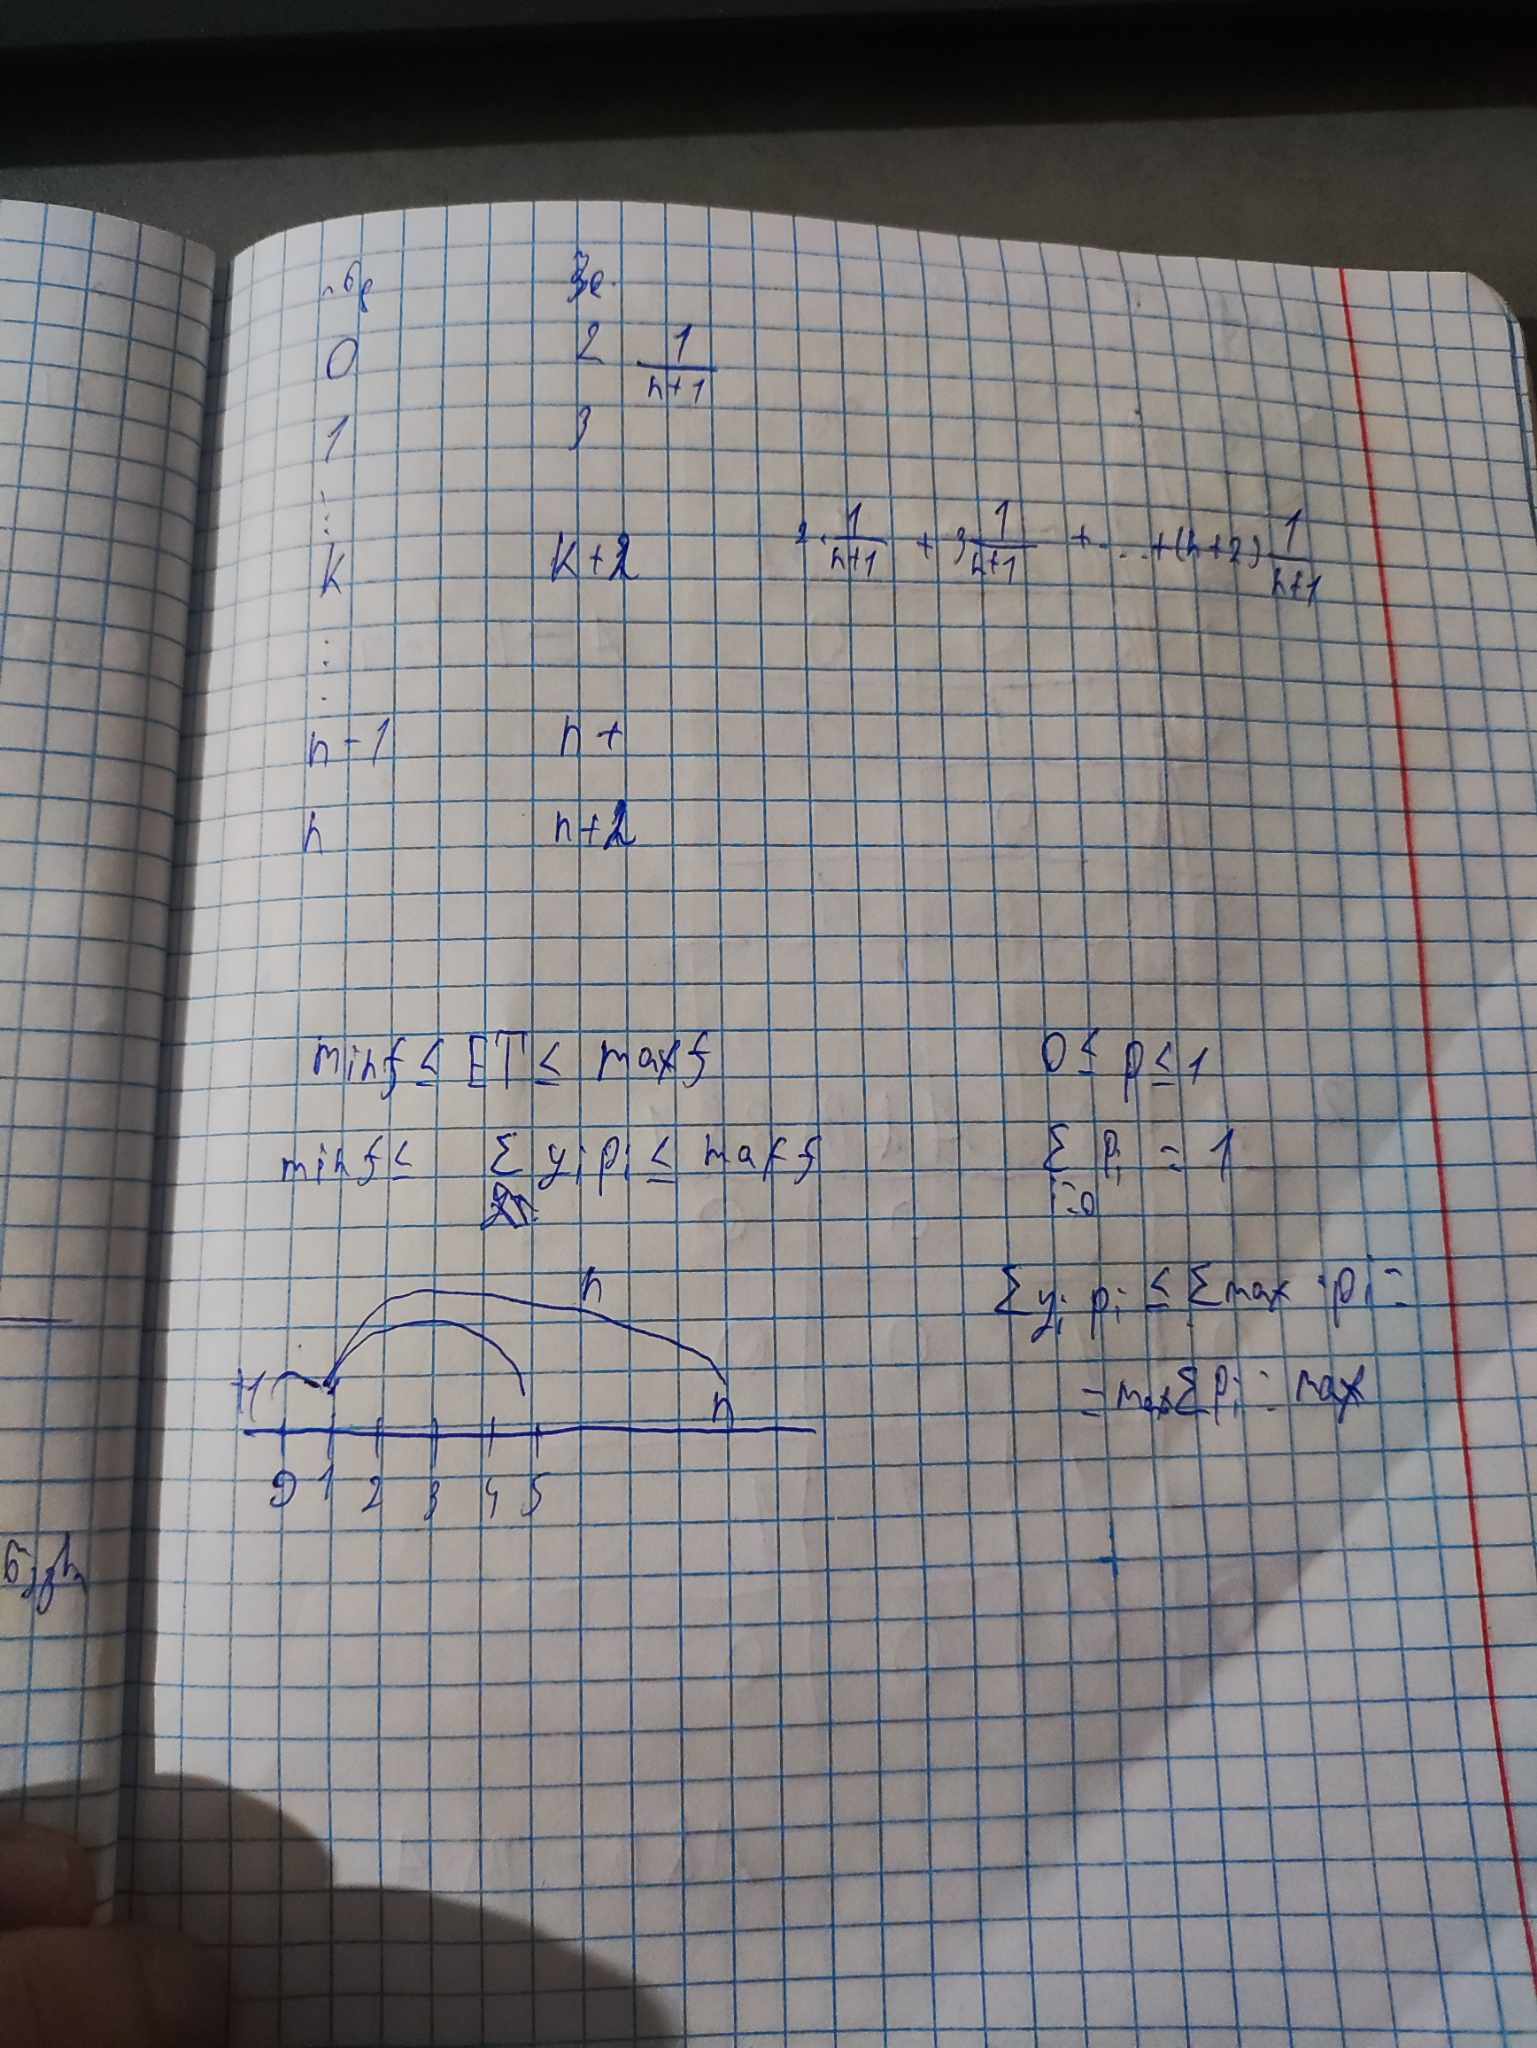 0 2 1/(n+1)
1 3
⋮
k k+2 2·1/(n+1) + 3 1/(n+1) + ... + (n+2) 1/(n+1)
⋮
n-1 n+
n n+2
minf ≤ ET ≤ maxf 0 ≤ p ≤ 1
minf ≤ Σ yᵢpᵢ ≤ maxf Σ pᵢ = 1
i=0
Σyᵢ pᵢ ≤ Σmax·pᵢ =
= maxΣpᵢ = max
n
n
0 1 2 3 4 5